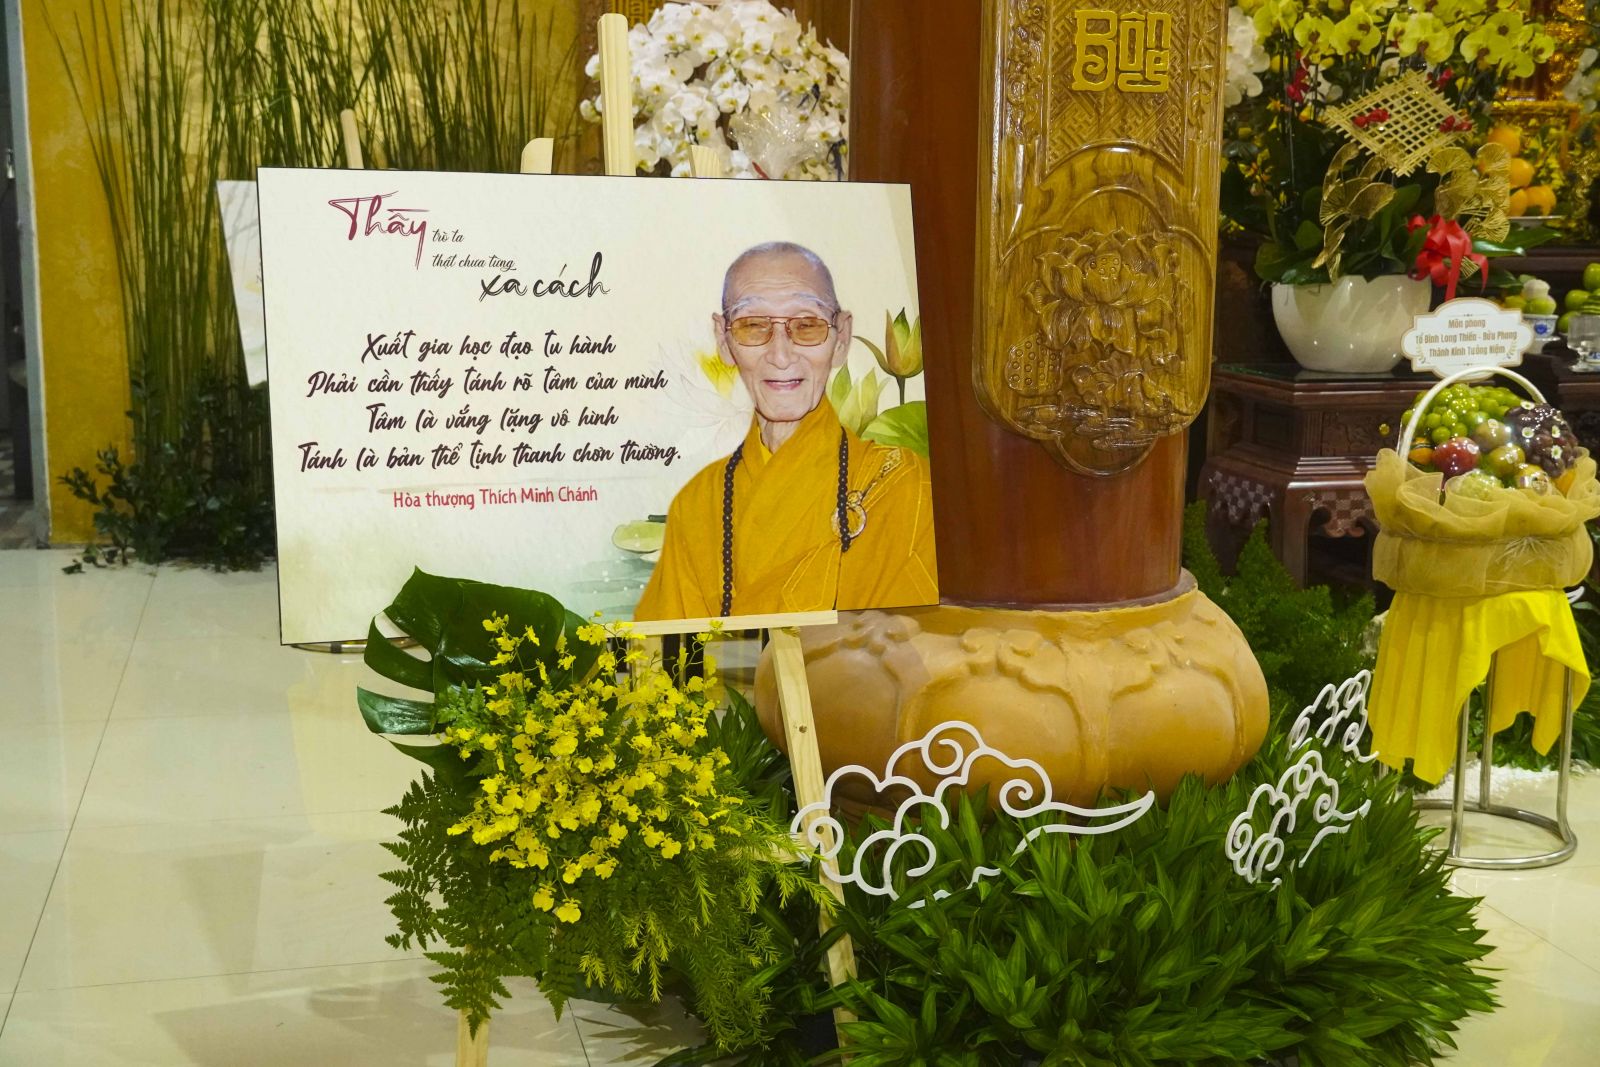 Thầy trò ta
thật chưa từng
xa cách
Xuất gia học đạo tu hành
Phải cần thấy tánh rõ tâm của mình
Tâm là vắng lặng vô hình
Tánh là bản thể tịnh thanh chơn thường.
Hòa thượng Thích Minh Chánh
Bổn
Môn phong
Tổ Đình Long Thiền - Bửu Phong
Thành Kính Tưởng Niệm